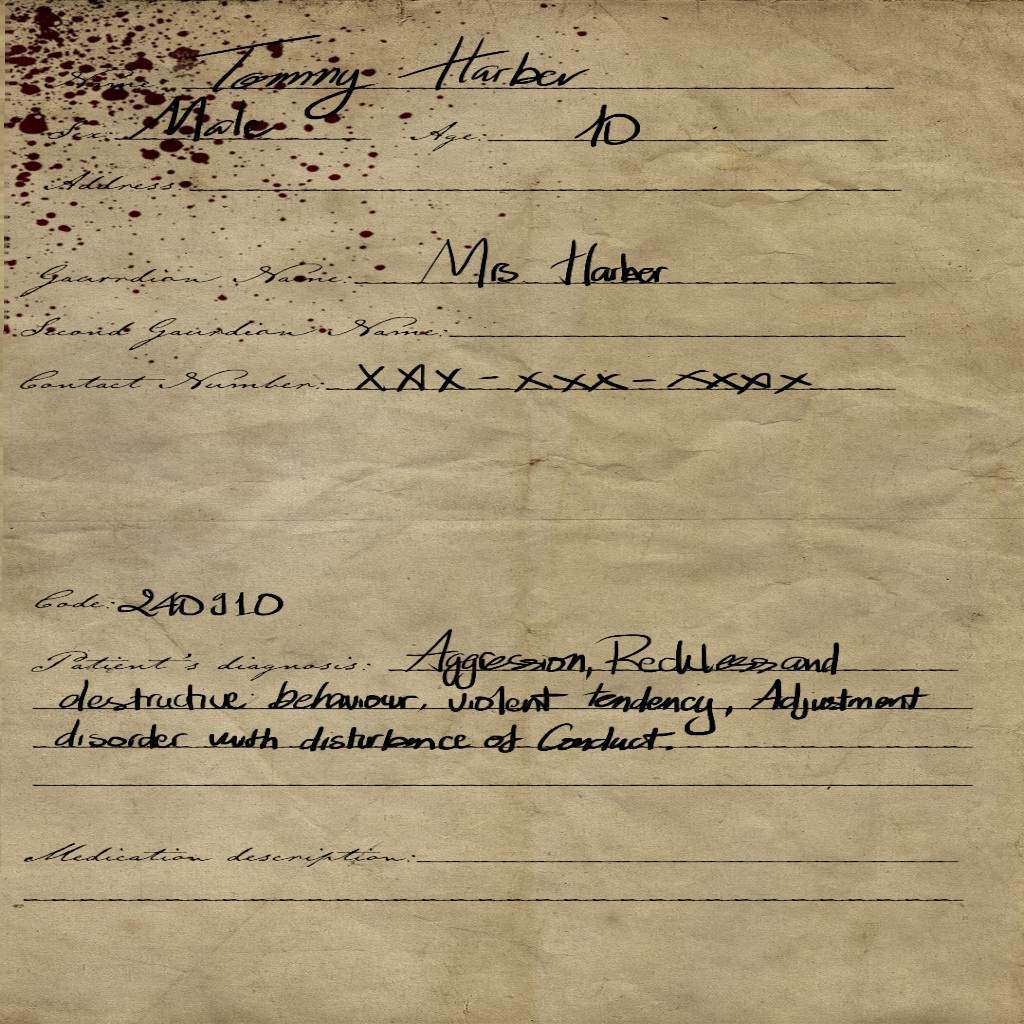 Name: Tommy Harber
Sex: Male Age: 10
Address:
Gaurdian Name: Mrs Harber
Second Gaurdian Name:
Contact Number: XXX-XXX-XXXX
Code: 240910
Patient's diagnosis: Aggression, Reckless and
destructive behaviour, violent tendency, Adjustment
disorder with disturbance of Conduct.
Medication description: